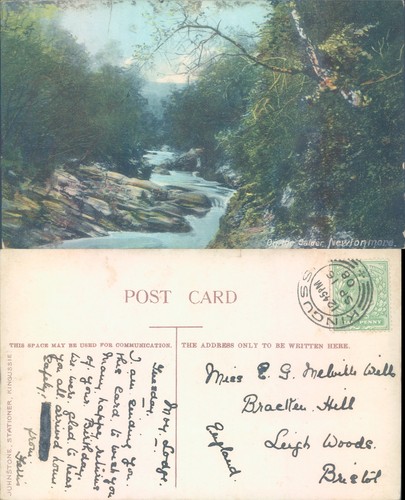 On the Calder, Newtonmore.
POST CARD
THIS SPACE MAY BE USED FOR COMMUNICATION.
THE ADDRESS ONLY TO BE WRITTEN HERE.
JOHNSTONE, STATIONER, KINGUSSIE.
KINGUSSIE
6.45PM
16
08
PENNY
May Lodge.
Tuesday.
I am sending you
this card to wish you
many happy returns
of your Birthday.
We were glad to hear
you all arrived home
safely.
from
Miss E. G. Melville Wills
Bracken Hill
Leigh Woods.
Bristol
England.